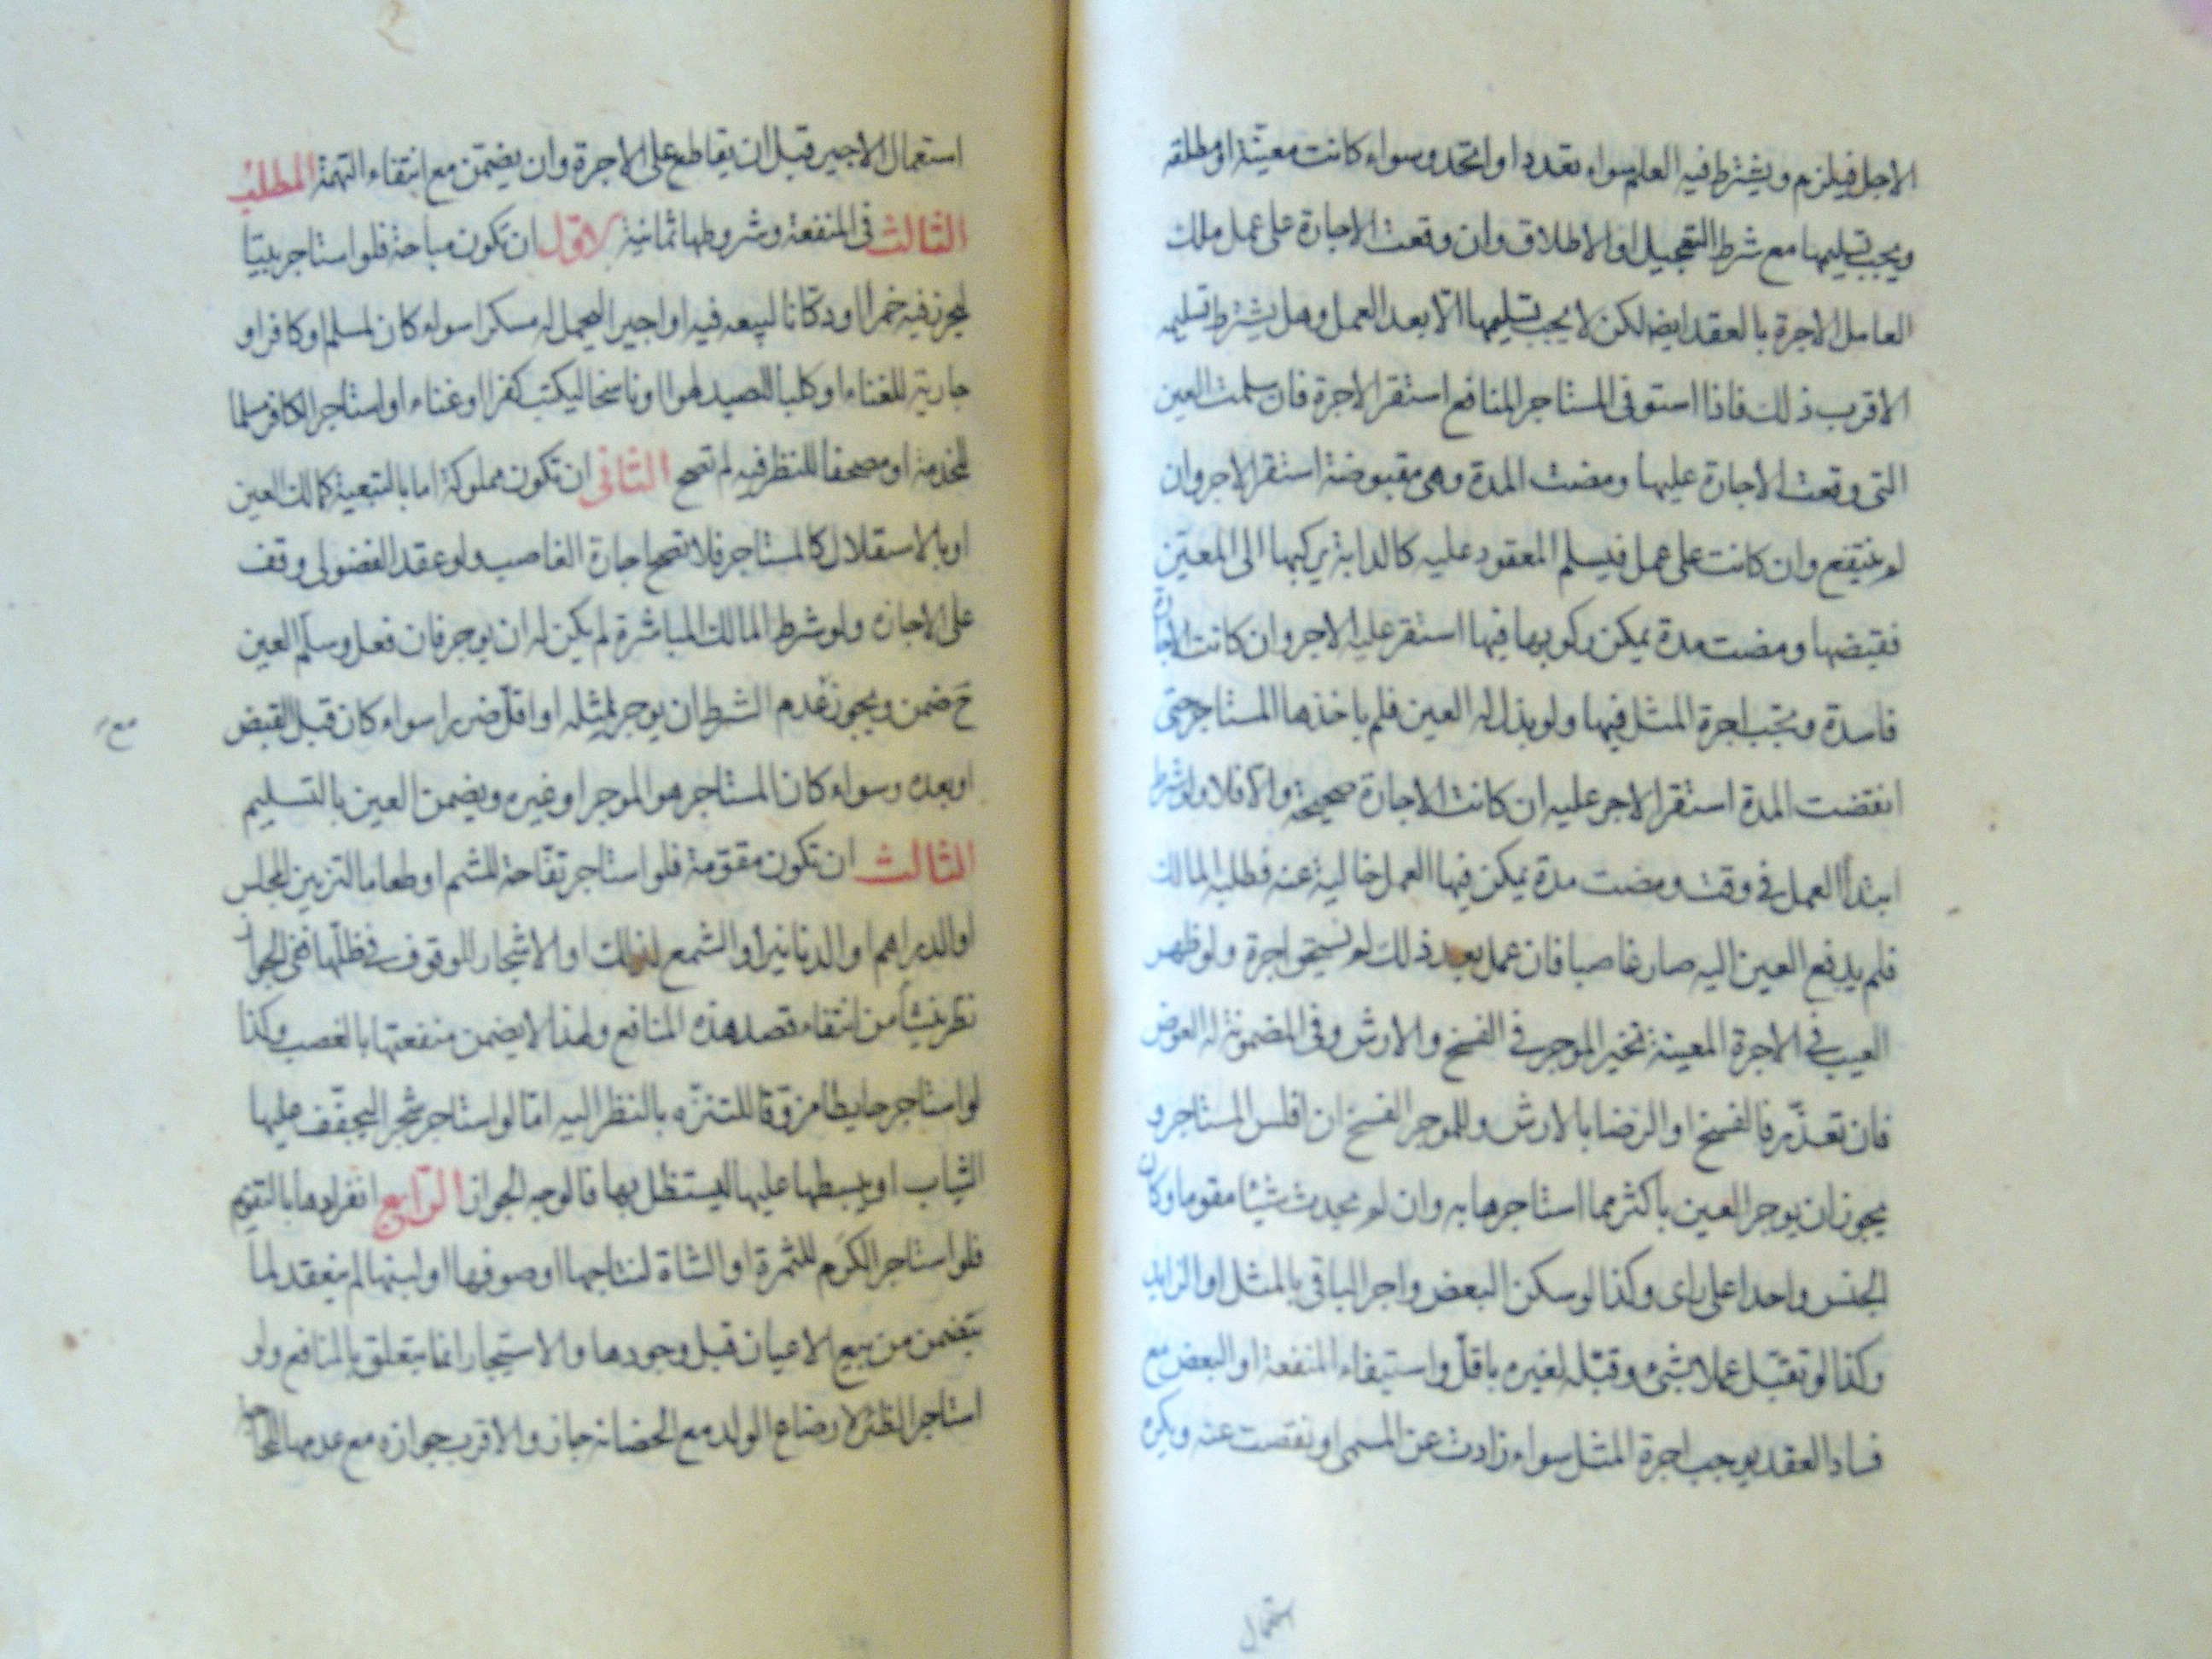 الاجل فيلزم ويشترط فيه العلم سواء تعدد او اتحد وسواء كانت معينة او مطلقه
ويجب تسليمها مع شرط التعجيل او الاطلاق وان وقعت الاجارة على عمل ملك
العامل الاجرة بالعقد ايضا لكن لا يجب تسليمها الا بعد العمل وهل يشترط تسليمه
الاقرب ذلك فاذا استوفى المستاجر المنافع استقر الاجرة فان سلمت العين
التى وقعت الاجارة عليها ومضت المدة وهى مقبوضة استقر الاجر وان
لم ينتفع وان كانت على عمل فيسلم المعقود عليه كالدابة يركبها الى المعين
فقبضها ومضت مدة يمكن ركوبها فيها استقر عليه الاجر وان كانت الاجارة
فاسدة ويجب اجرة المثل فيها ولو بذل له العين فلم ياخذها المستاجر حتى
انقضت المدة استقر الاجر عليه ان كانت الاجارة صحيحة والا فلا ولو شرط
ابتدأ العمل في وقت ومضت مدة يمكن فيها العمل خالية عنه فطلبه المالك
فلم يدفع العين اليه صار غاصبا فان عمل بعد ذلك لم يستحق اجرة ولو ظهر
العيب في الاجرة المعينة تخير الموجر في الفسخ والارش وفى المضمونة له العوض
فان تعذر فالفسخ او الرضا بالارش وللموجر الفسخ ان افلس المستاجر و
يجوز ان يوجر العين باكثر مما استاجرها به وان لم يحدث شيئا مقوما وكان
الجنس واحدا على راى وكذا لو سكن البعض واجر الباقى بالمثل او الزايد
وكذا لو تقبل عملا بشئ وقبله لغيره باقل واستيفاء المنفعة او البعض مع
فساد العقد يوجب اجرة المثل سواء زادت عن المسمى او نقصت عنه ويكره
استعمال
استعمال الاجير قبل ان يقاطع على الاجرة وان يضمن مع انتفاء التهمة المطلب
الثالث فى المنفعة وشروطها ثمانية الاول ان تكون مباحة فلو استاجر بيتا
ليحرز فيه خمرا او دكانا ليبيعه فيه او اجيرا ليحمل له مسكرا سواء كان لمسلم او كافر او
جارية للغناء او كلبا للصيد لهوا او ناسخا ليكتب كفرا او غناء او استاجر الكافر مسلما
للخدمة او مصحفا للنظر فيه لم تصح الثانى ان تكون مملوكة اما بالتبعية كمالك العين
او بالاستقلال كالمستاجر فلا تصح اجارة الغاصب ولو عقد الفضولى وقف
على الاجازة ولو شرط المالك المباشرة لم يكن له ان يوجر فان فعل وسلم العين
ح ضمن ويجوز بعدم الشرط ان يوجر لمثله او اقل ضررا سواء كان قبل القبض
او بعده وسواء كان المستاجر هو الموجر او غيره ويضمن العين بالتسليم
الثالث ان تكون مقومة فلو استاجر تفاحة للشم او طعاما لتزيين المجلس
او الدراهم او الدنانير او الشمع لذلك او الاشجار للوقوف في ظلها ففى الجواز
نظر ينشأ من انتفاء قصد هذه المنافع ولهذا لا يضمن منفعتها بالغصب وكذا
لو استاجر حايطا مزوقا للتنزه بالنظر اليه اما لو استاجر شجرا ليجفف عليها
الثياب او يبسطها عليها ليستظل بها فالوجه الجواز الرابع انفرادها بالتقويم
فلو استاجر الكرم للثمرة او الشاة لنتاجها او صوفها او لبنها لم ينعقد لما
يتضمن من بيع الاعيان قبل وجودها والاستيجار انما يتعلق بالمنافع ولو
استاجر الظئر لارضاع الولد مع الحضانة جاز والاقرب جوازه مع عدمها للحاجة